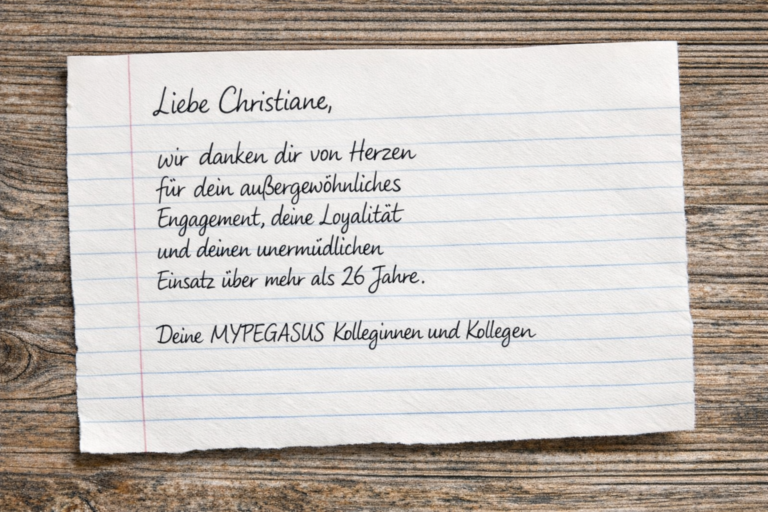 Liebe Christiane,
wir danken dir von Herzen
für dein außergewöhnliches
Engagement, deine Loyalität
und deinen unermüdlichen
Einsatz über mehr als 26 Jahre.
Deine MYPEGASUS Kolleginnen und Kollegen